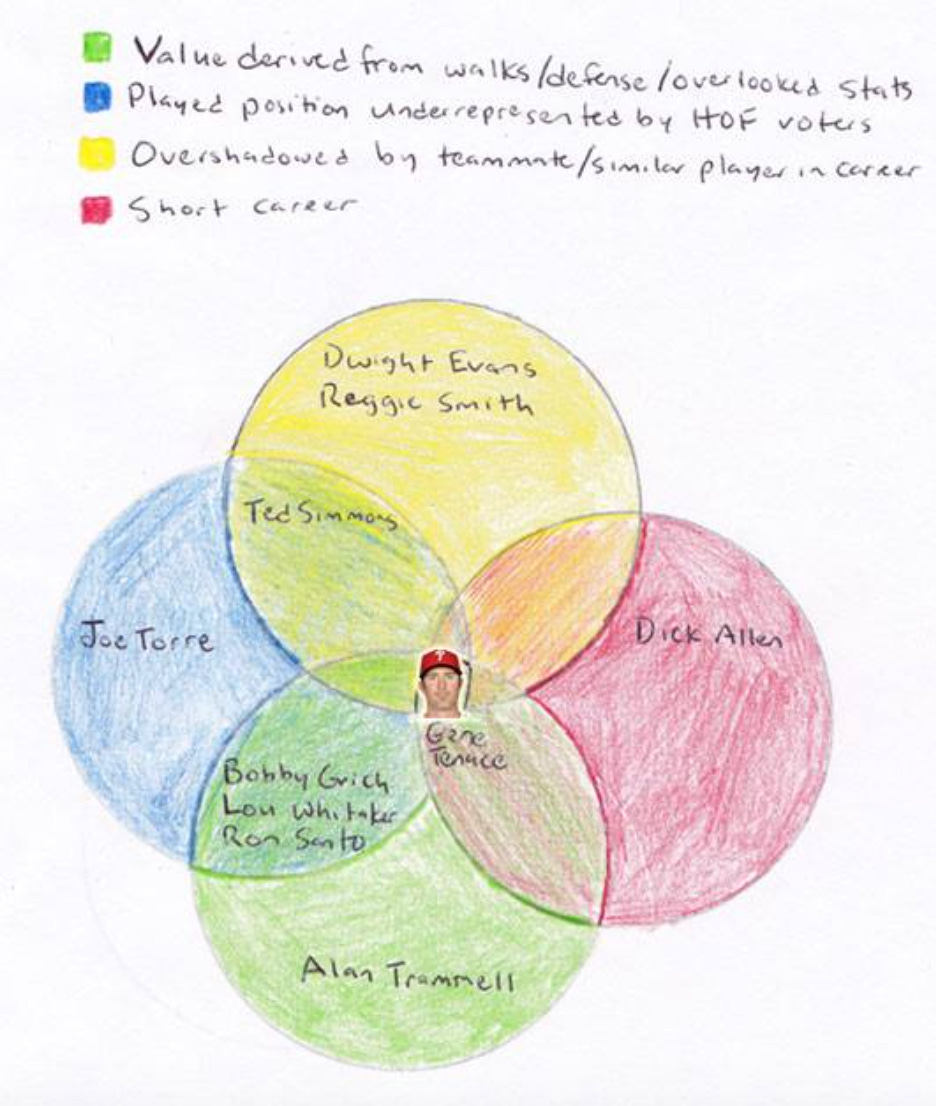 Value derived from walks/defense/overlooked stats
Played position underrepresented by HOF voters
Overshadowed by teammate/similar player in career
Short career
Dwight Evans
Reggie Smith
Ted Simmons
Joe Torre
Dick Allen
Gene
Tenace
Bobby Grich
Lou Whitaker
Ron Santo
Alan Trammell